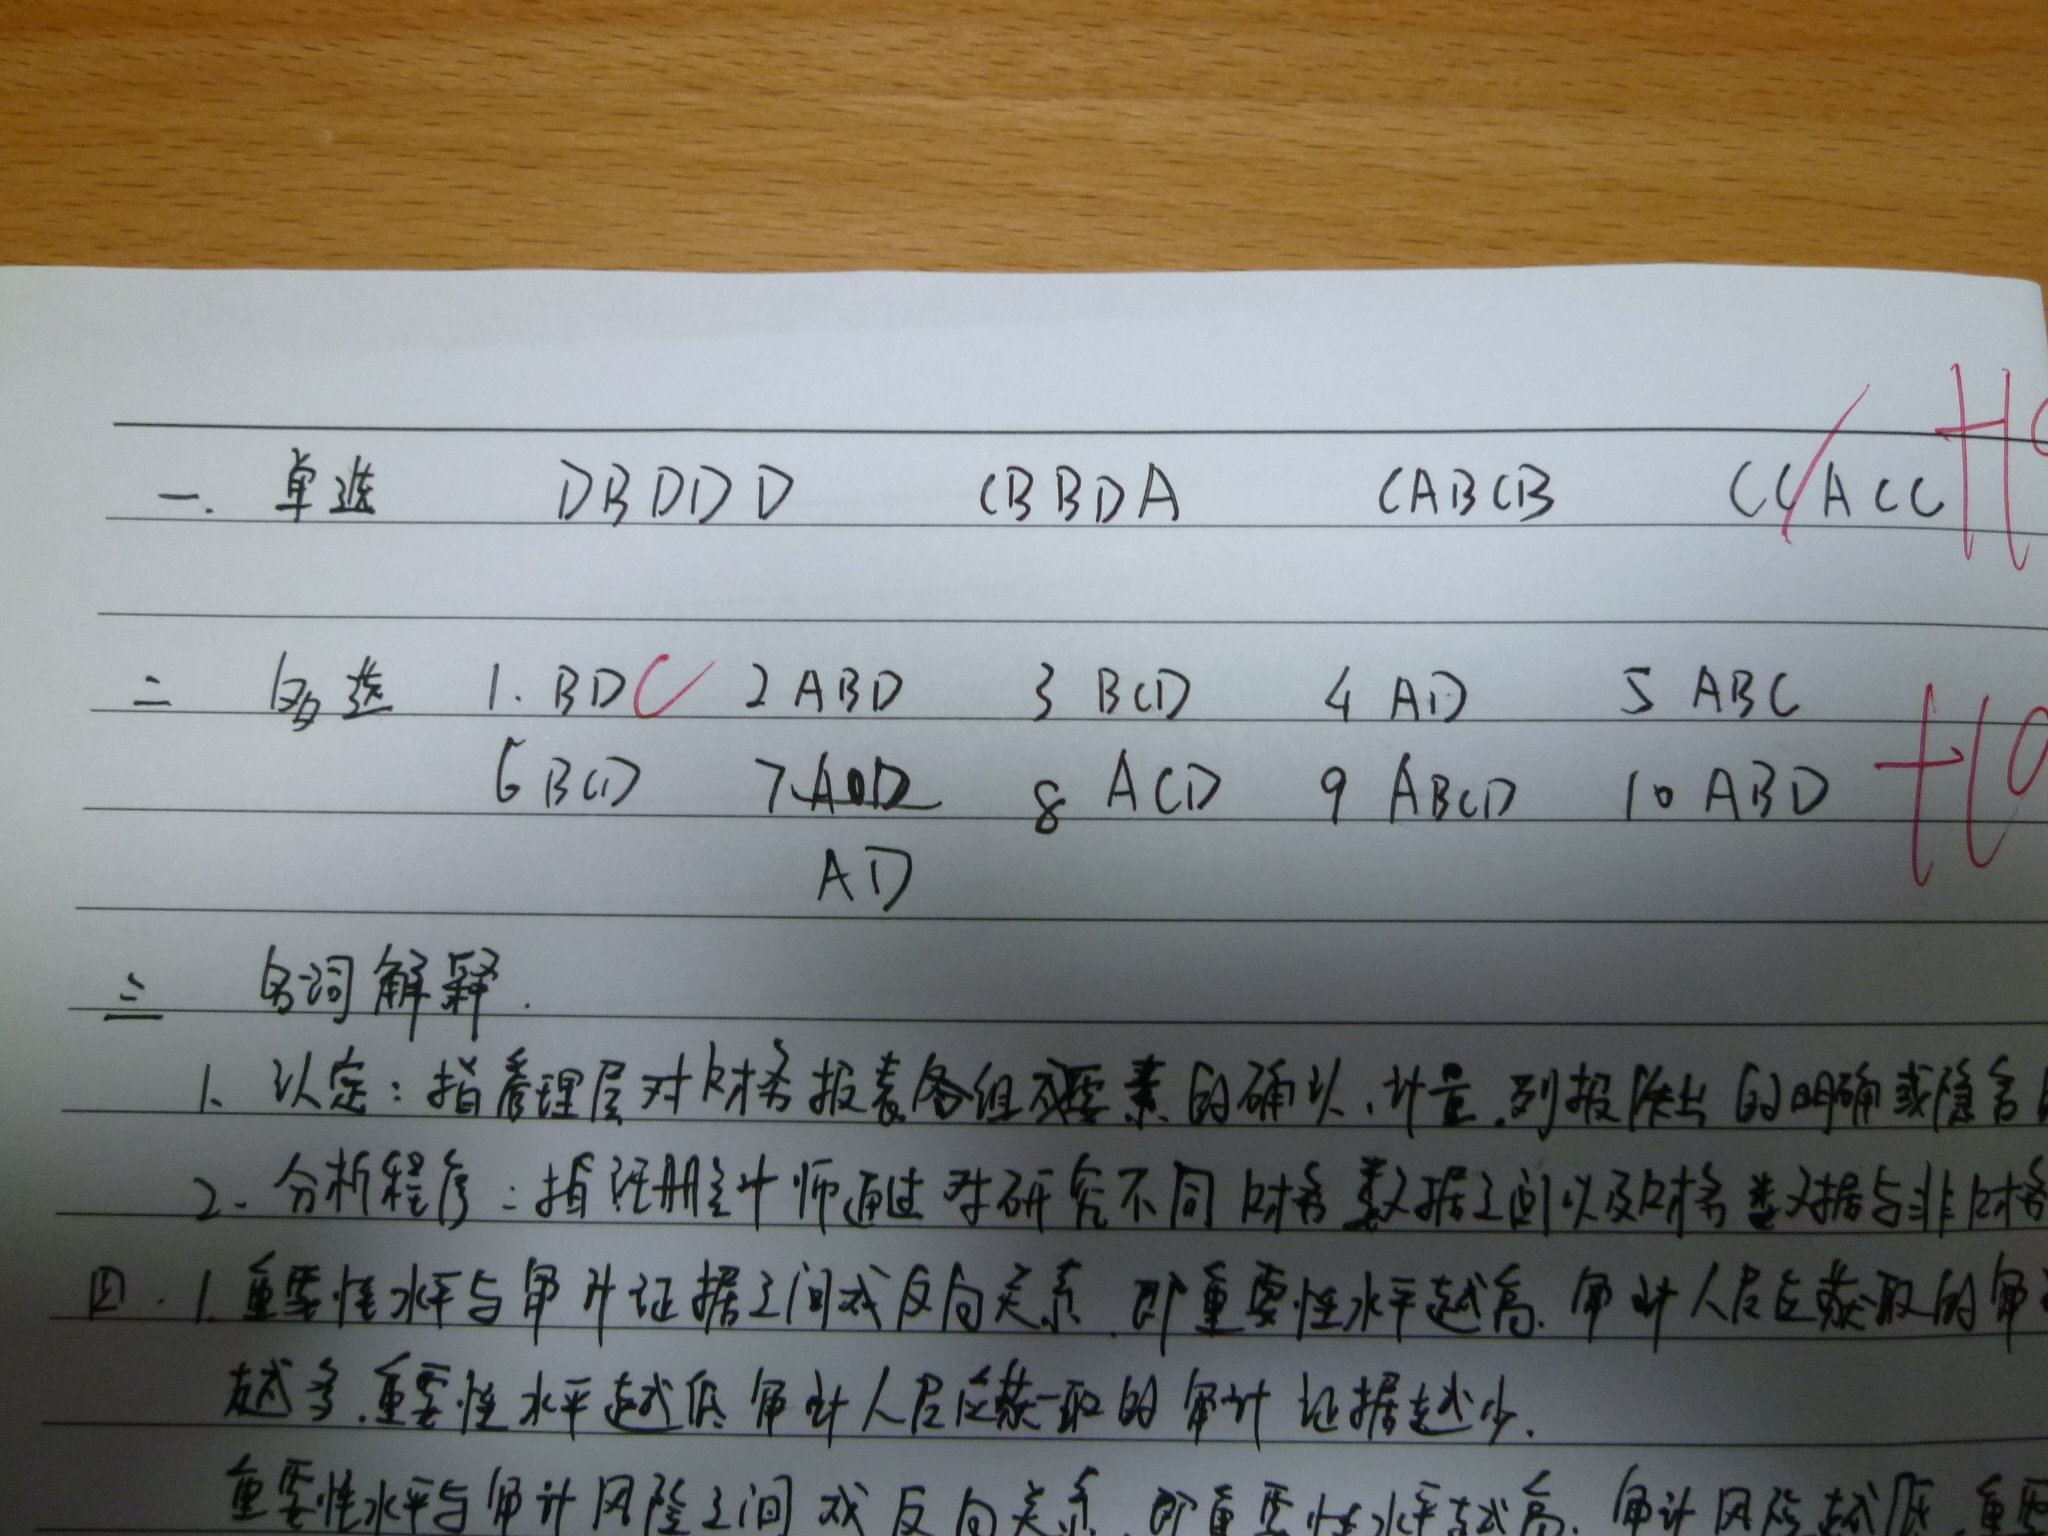 一. 单选 DBDDD CBBDA CABCB CCACC
二 多选 1. BDC 2 ABD 3 BCD 4 AD 5 ABC
6 BCD 7 8 ACD 9 ABCD 10 ABD +10
AD
三 名词解释.
1. 认定：指管理层对财务报表各组成要素的确认、计量、列报作出的明确或隐含
2. 分析程序：指注册会计师通过对研究不同财务数据之间以及财务数据与非财务
四. 1. 重要性水平与审计证据之间成反向关系，即重要性水平越高，审计人员应获取的审
越多，重要性水平越低审计人员应获取的审计证据越少.
重要性水平与审计风险之间成反向关系，即重要性水平越高，审计风险越低 重要